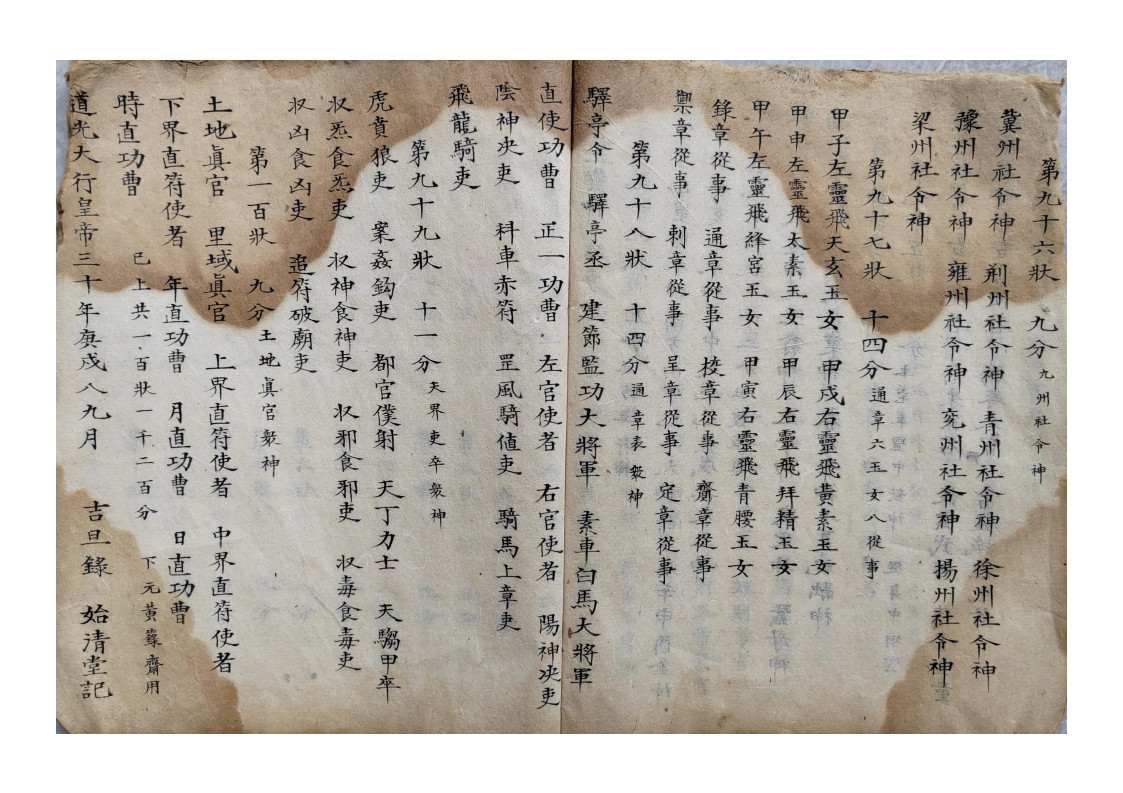 第九十六狀　九分九州社令神
冀州社令神　荆州社令神　青州社令神　徐州社令神
豫州社令神　雍州社令神　兗州社令神　揚州社令神
梁州社令神
第九十七狀　十四分通章六玉女八從事
甲子左靈飛天玄玉女　甲戍右靈飛黃素玉女
甲申左靈飛太素玉女　甲辰右靈飛拜精玉女
甲午左靈飛絳宮玉女　甲寅右靈飛青腰玉女
錄章從事　通章從事　挍章從事　齎章從事
禦章從事　刺章從事　呈章從事　定章從事
第九十八狀　十四分通章表衆神
驛亭令　驛亭丞　建節監功大將軍　素車白馬大將軍
直使功曹　正一功曹　左官使者　右官使者　陽神决吏
陰神决吏　科車赤符　罡風騎值吏　騎馬上章吏
飛龍騎吏
第九十九狀　十一分天界吏卒衆神
虎賁狼吏　案姦鈎吏　都官僕射　天丁力士　天騶甲卒
収炁食炁吏　収神食神吏　収邪食邪吏　収毒食毒吏
収凶食凶吏　追符破廟吏
第一百狀　九分土地眞官衆神
土地眞官　里域眞官　上界直符使者　中界直符使者
下界直符使者　年直功曹　月直功曹　日直功曹
時直功曹　已上共一百狀一千二百分　下元黄籙齋用
道光大行皇帝三十年庚戍八九月　吉旦錄　始清堂記